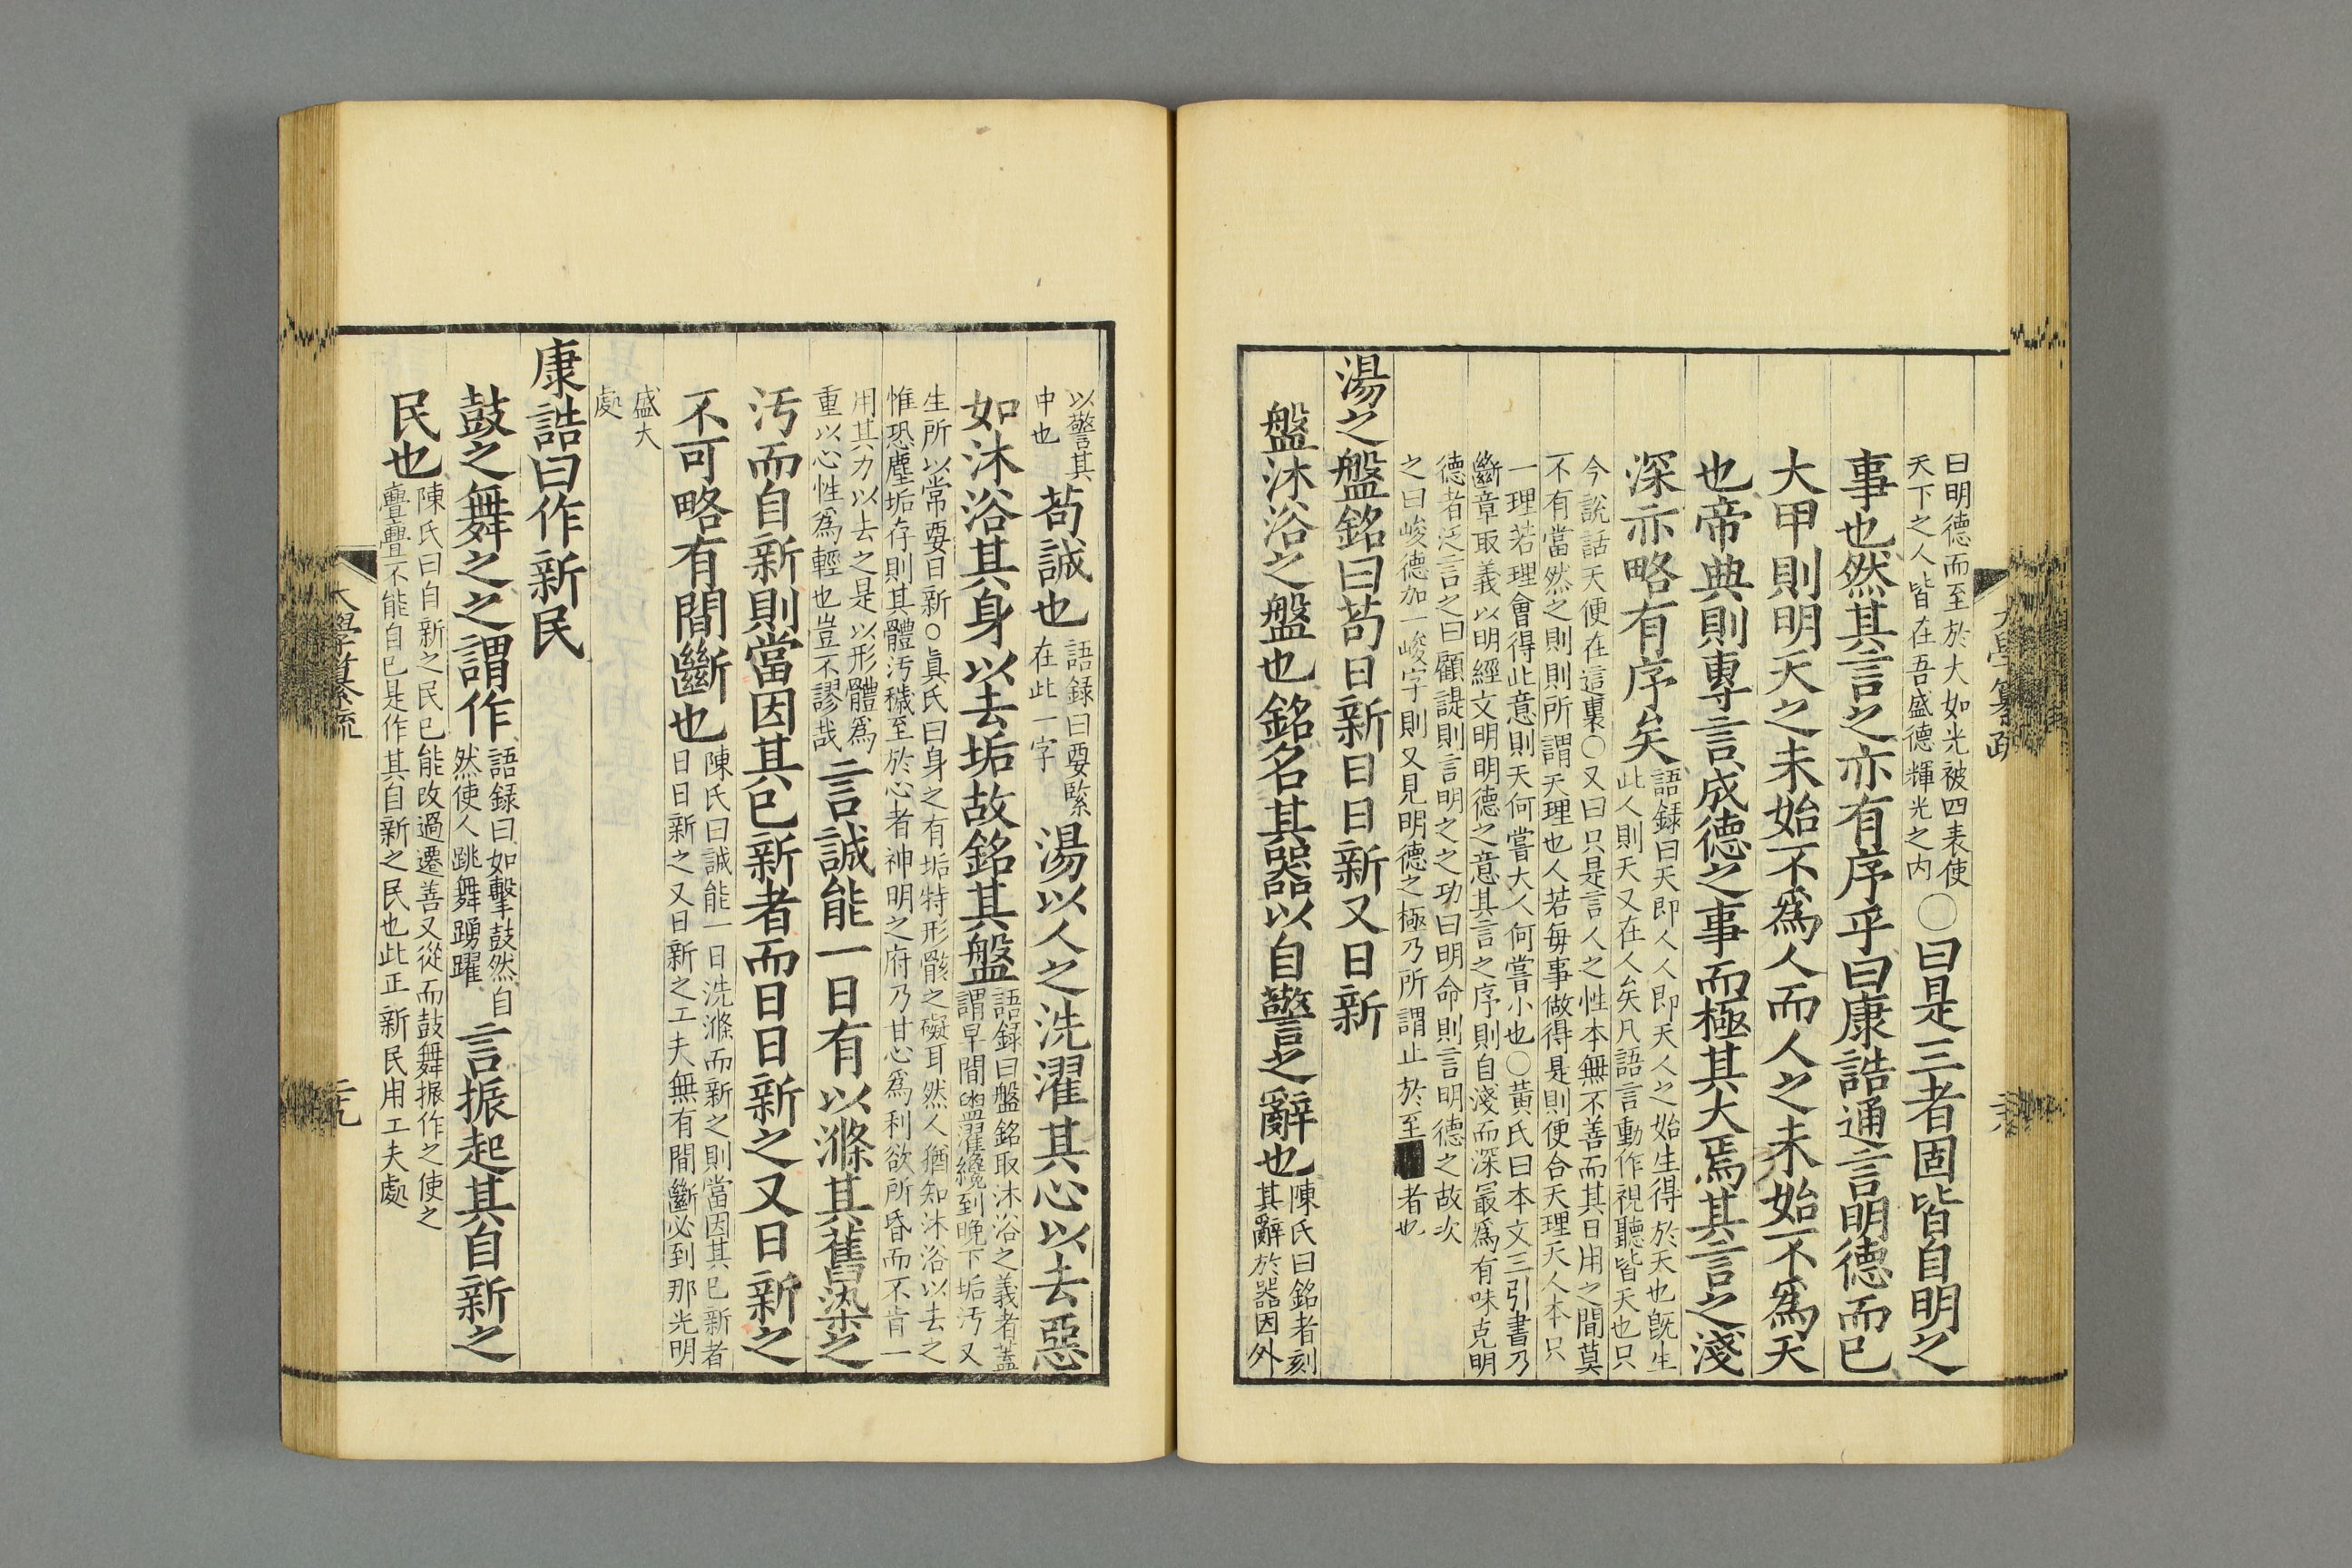 曰明德而至於大如光被四表使
天下之人皆在吾盛德輝光之内
〇曰是三者固皆自明之
事也然其言之亦有序乎曰康誥通言明德而已
大甲則明天之未始不爲人而人之未始不爲天
也帝典則專言成德之事而極其大焉其言之淺
深亦略有序矣
語録曰天即人人即天人之始生得於天也旣生
此人則天又在人矣凡語言動作視聽皆天也只
今說話天便在這裏〇又曰只是言人之性本無不善而其日用之間莫
不有當然之則則所謂天理也人若每事做得是則便合天理天人本只
一理若理會得此意則天何嘗大人何嘗小也〇黃氏曰本文三引書乃
斷章取義以明經文明明德之意其言之序則自淺而深最爲有味克明
德者泛言之曰顧諟則言明之之功曰明命則言明德之故次
之曰峻德加一峻字則又見明德之極乃所謂止於至
者也
湯之盤銘曰苟日新日日新又日新
盤沐浴之盤也銘名其器以自警之辭也
陳氏曰銘者刻
其辭於器因外
大學纂疏
以警其
中也
苟誠也
語録曰要緊
在此一字
湯以人之洗濯其心以去惡
如沐浴其身以去垢故銘其盤
語録曰盤銘取沐浴之義者蓋
謂早間盥濯纔到晚下垢汚又
生所以常要日新〇眞氏曰身之有垢特形骸之礙耳然人猶知沐浴以去之
惟恐塵垢存則其體汚穢至於心者神明之府乃甘心爲利欲所昏而不肯一
用其力以去之是以形體爲
重以心性爲輕也豈不謬哉
言誠能一日有以滌其舊染之
汚而自新則當因其已新者而日日新之又日新之
不可略有間斷也
陳氏曰誠能一日洗滌而新之則當因其已新者
日日新之又日新之工夫無有間斷必到那光明
盛大
處
康誥曰作新民
鼓之舞之之謂作
語録曰如擊鼓然自
然使人跳舞踴躍
言振起其自新之
民也
陳氏曰自新之民已能改過遷善又從而鼓舞振作之使之
亹亹不能自已是作其自新之民也此正新民用工夫處
大學纂疏